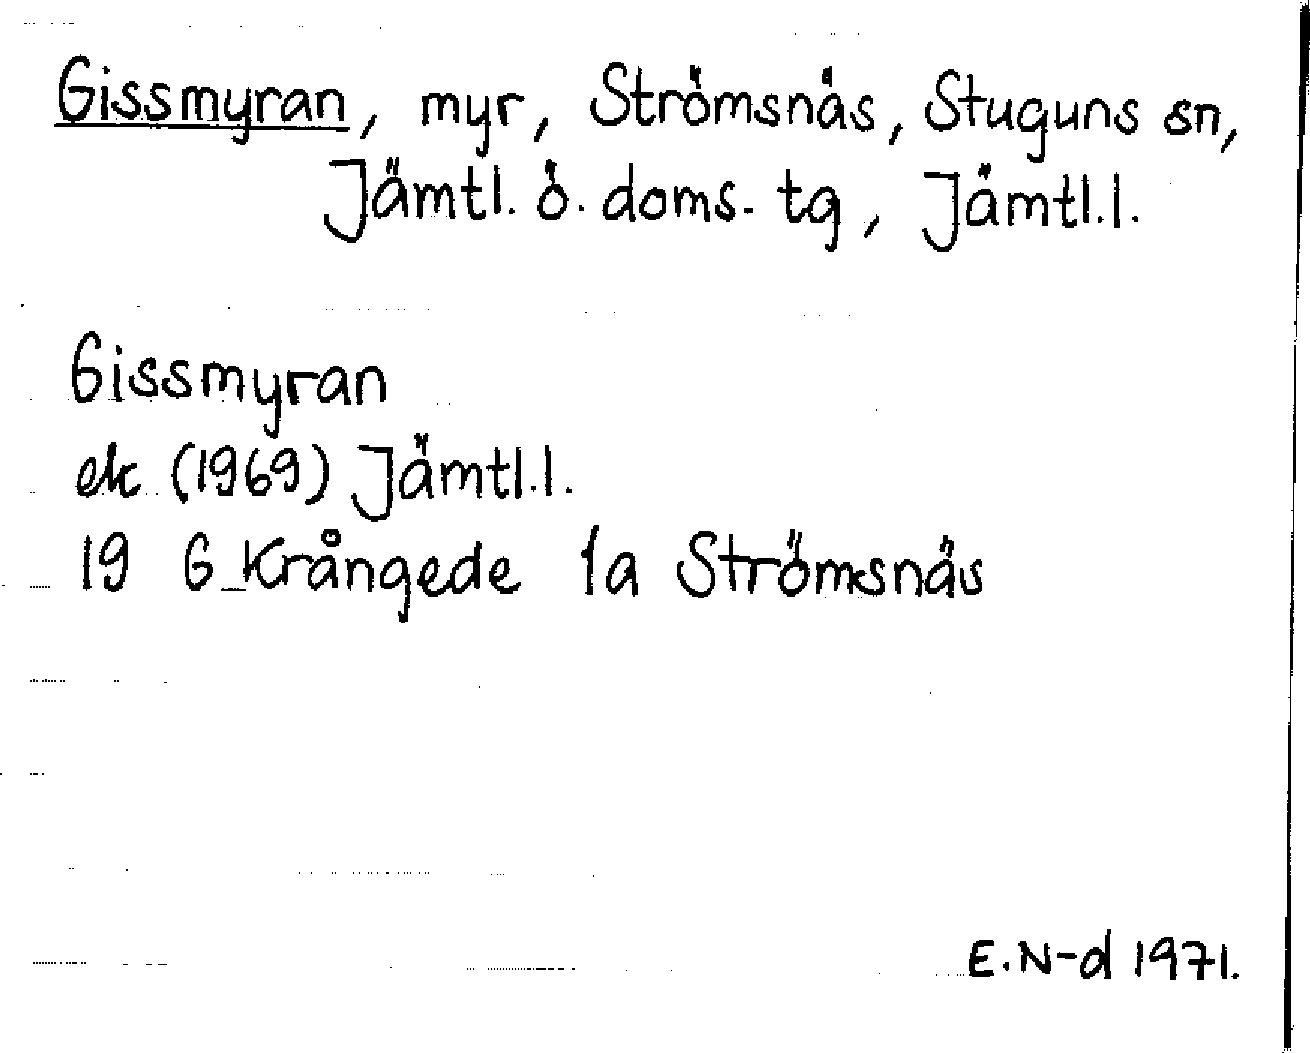 Gissmyran, myr, Strömsnäs, Stuguns sn,
Jämtl. ö. doms. tg, Jämtl.l.
Gissmyran
ek (1969) Jämtl.l.
19 G Krångede 1a Strömsnäs
E.N-d 1971.